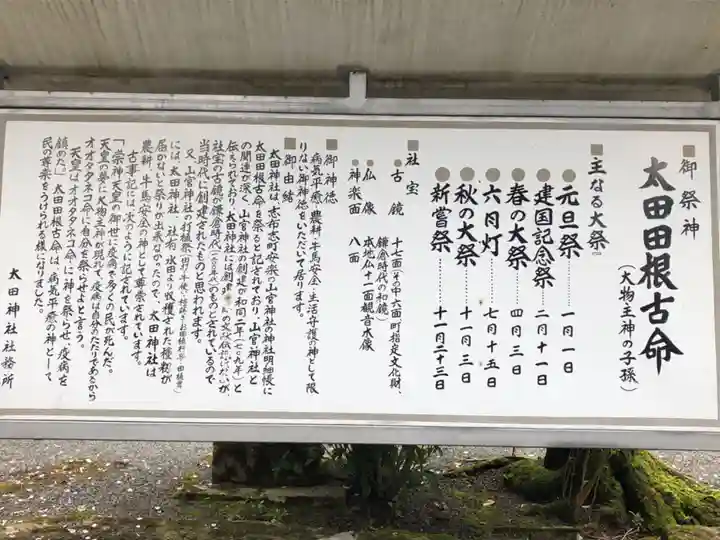 御祭神
太田田根古命
(大物主神の子孫)
主なる大祭
元旦祭………一月一日
建国記念祭……二月十一日
春の大祭………四月三日
六月灯………七月十五日
秋の大祭………十一月三日
新嘗祭………十一月二十三日
社宝
古鏡 十七面(その中六面町指定文化財、
鎌倉時代の和鏡)
仏像 本地仏十一面観音木像
神楽面 八面
御神徳
病気平癒、農耕、牛馬安全、生活守護の神として限
りない御神徳をいただいて居ります。
御由緒
太田神社は、志布志町安楽の山宮神社の神社明細帳に
太田田根古命を祭ると記されており、山宮神社と
の関連が深く、山宮神社の創建が和同二年(七〇九年)と
伝えられており、太田神社には創建 の文化伝 いだいが、
社宝の古鏡が鎌倉時代 のものとされているので
当時代に創建されたものと思われます。
又、山宮神社の打植祭
には、太田神社 社有 水田より収穫された種籾が
届かないと祭りが出来なかったので、太田神社は
農耕、牛馬安全の神として尊崇されています。
古事記には次のように記されています。
「崇神天皇の御世に疫病で多くの民が死んだ。
天皇の夢に大物主神が現れて疫病は自分のたたりであるから
オオタタネコ命に自分を祭らせよと言う。
天皇はオオタタネコ命に神を祭らせ、疫病を
鎮めた」太田田根古命は、病気平癒の神として
民の尊崇をうけられる様になりました。
太田神社社務所